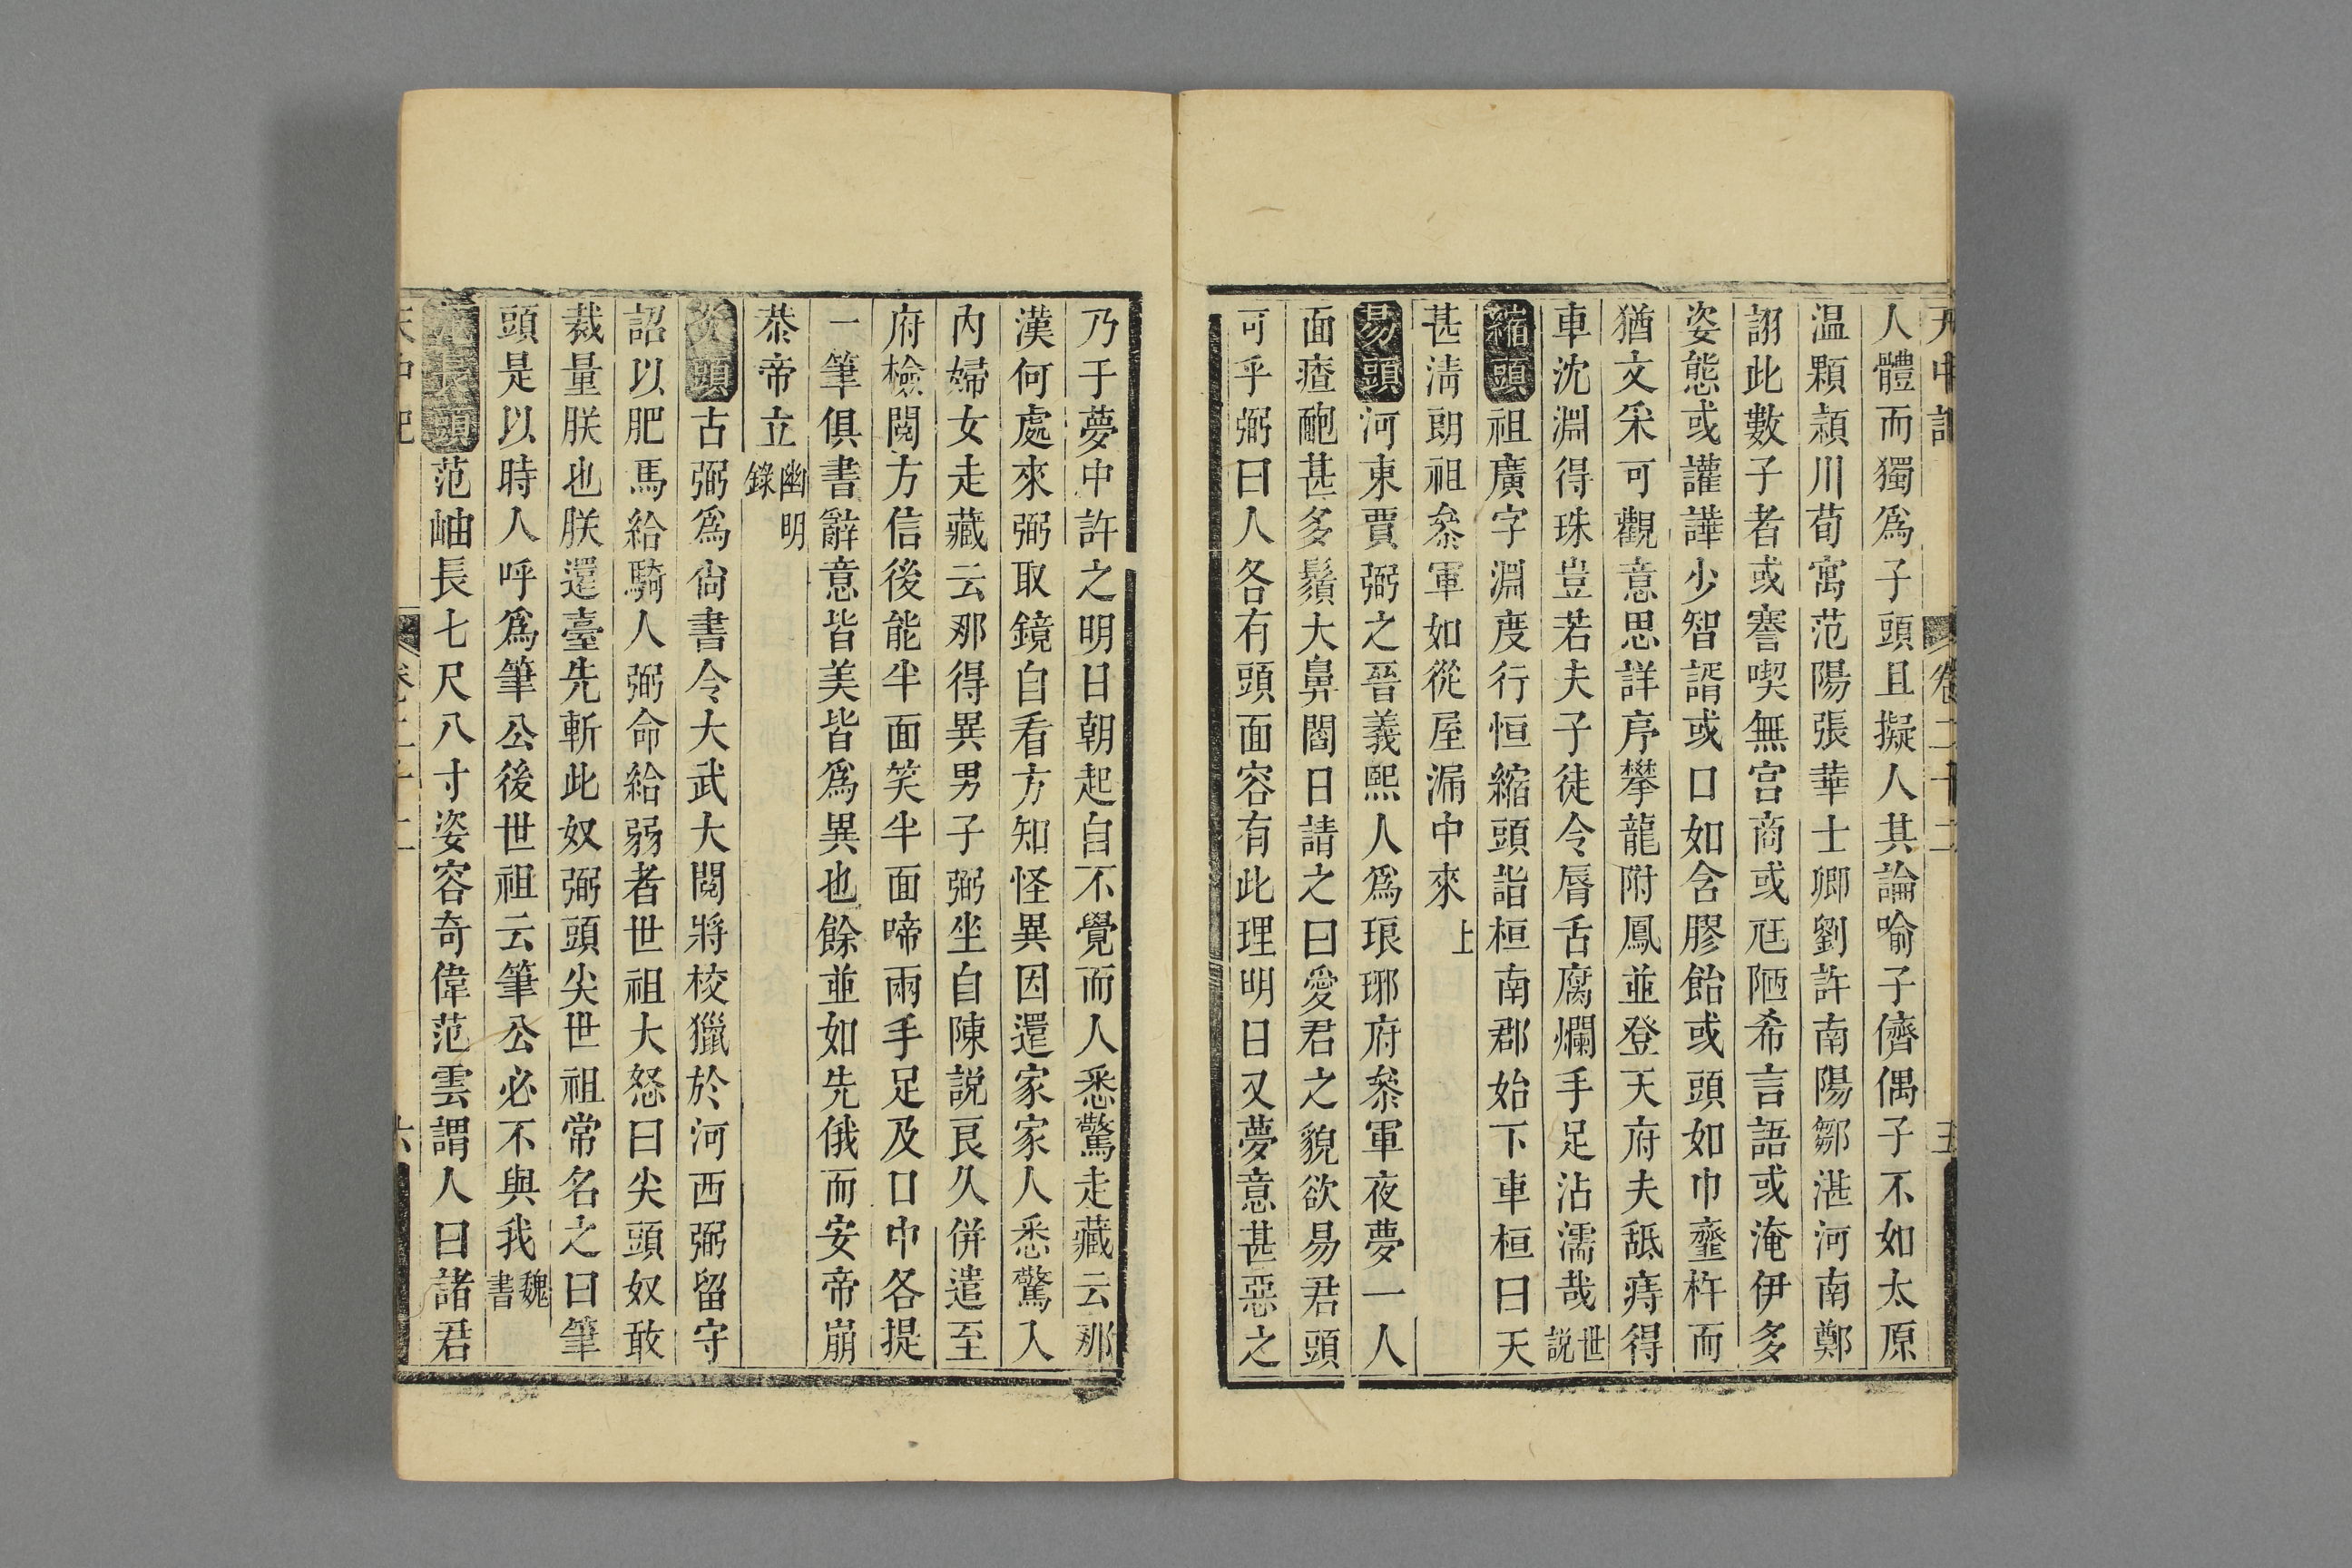 天中記 卷二十二 五
人體而獨爲子頭且擬人其論喻子儕偶子不如太原
温顆頴川荀寓范陽張華士卿劉許南陽鄒湛河南鄭
詡此數子者或謇喫無宫商或尩陋希言語或淹伊多
姿態或讙譁少智諝或口如含膠飴或頭如巾虀杵而
猶文采可觀意思詳序攀龍附鳳並登天府夫舐痔得
車沈淵得珠豈若夫子徒令脣舌腐爛手足沾濡哉世説
縮頭祖廣字淵度行恒縮頭詣桓南郡始下車桓曰天
甚淸朗祖叅軍如從屋漏中來上
易頭河東賈弼之晉義熙人爲琅琊府叅軍夜夢一人
面㾴皰甚多鬚大鼻䦘日請之曰愛君之貌欲易君頭
可乎弼曰人各有頭面容有此理明日又夢意甚惡之
乃于夢中許之明日朝起自不覺而人悉驚走藏云那
漢何處來弼取鏡自看方知怪異因還家家人悉驚入
內婦女走藏云那得異男子弼坐自陳說良久併遣至
府檢閱方信後能半面笑半面啼兩手足及口中各提
一筆俱書辭意皆美皆爲異也餘並如先俄而安帝崩
恭帝立幽明錄
尖頭古弼爲尙書令大武大閱將校獵於河西弼留守
詔以肥馬給騎人弼命給弱者世祖大怒曰尖頭奴敢
裁量朕也朕還臺先斬此奴弼頭尖世祖常名之曰筆
頭是以時人呼爲筆公後世祖云筆公必不與我魏書
長頭范岫長七尺八寸姿容奇偉范雲謂人曰諸君
天中記 卷二十二 六